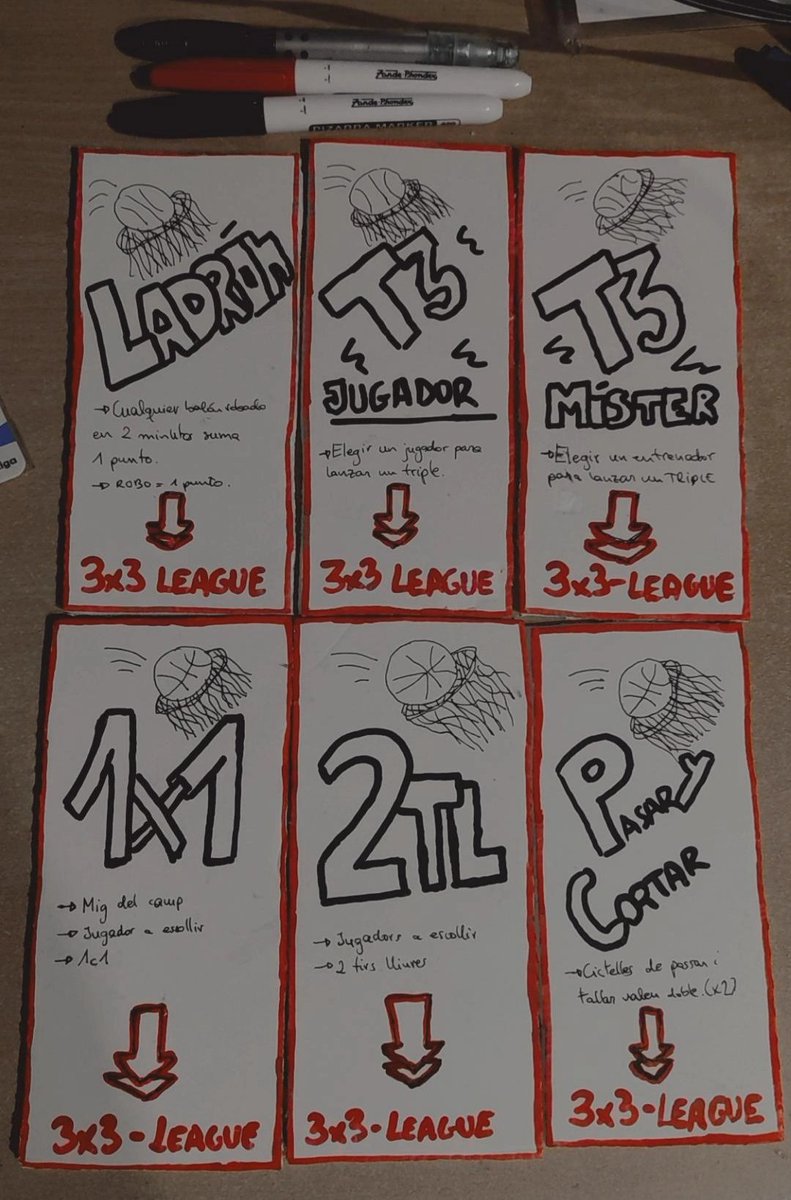 Fande Phonder
Fande Phonder
PIZARRA MARKER
LADRÓN
→ Cualquier balón robado
en 2 minutos suma
1 punto.
→ ROBO = 1 punto.
3x3 LEAGUE
T3
JUGADOR
→ Elegir un jugador para
lanzar un triple.
3x3 LEAGUE
T3
MÍSTER
→ Elegir un entrenador
para lanzar un TRIPLE
3x3-LEAGUE
iga
1x1
→ Mig del camp
→ Jugador a escollir
→ 1c1
3x3-LEAGUE
2TL
→ Jugadors a escollir
→ 2 tirs lliures
3x3-LEAGUE
PASAR Y
CORTAR
→ Cistelles de passar i
tallar valen doble. (x2)
3x3-LEAGUE